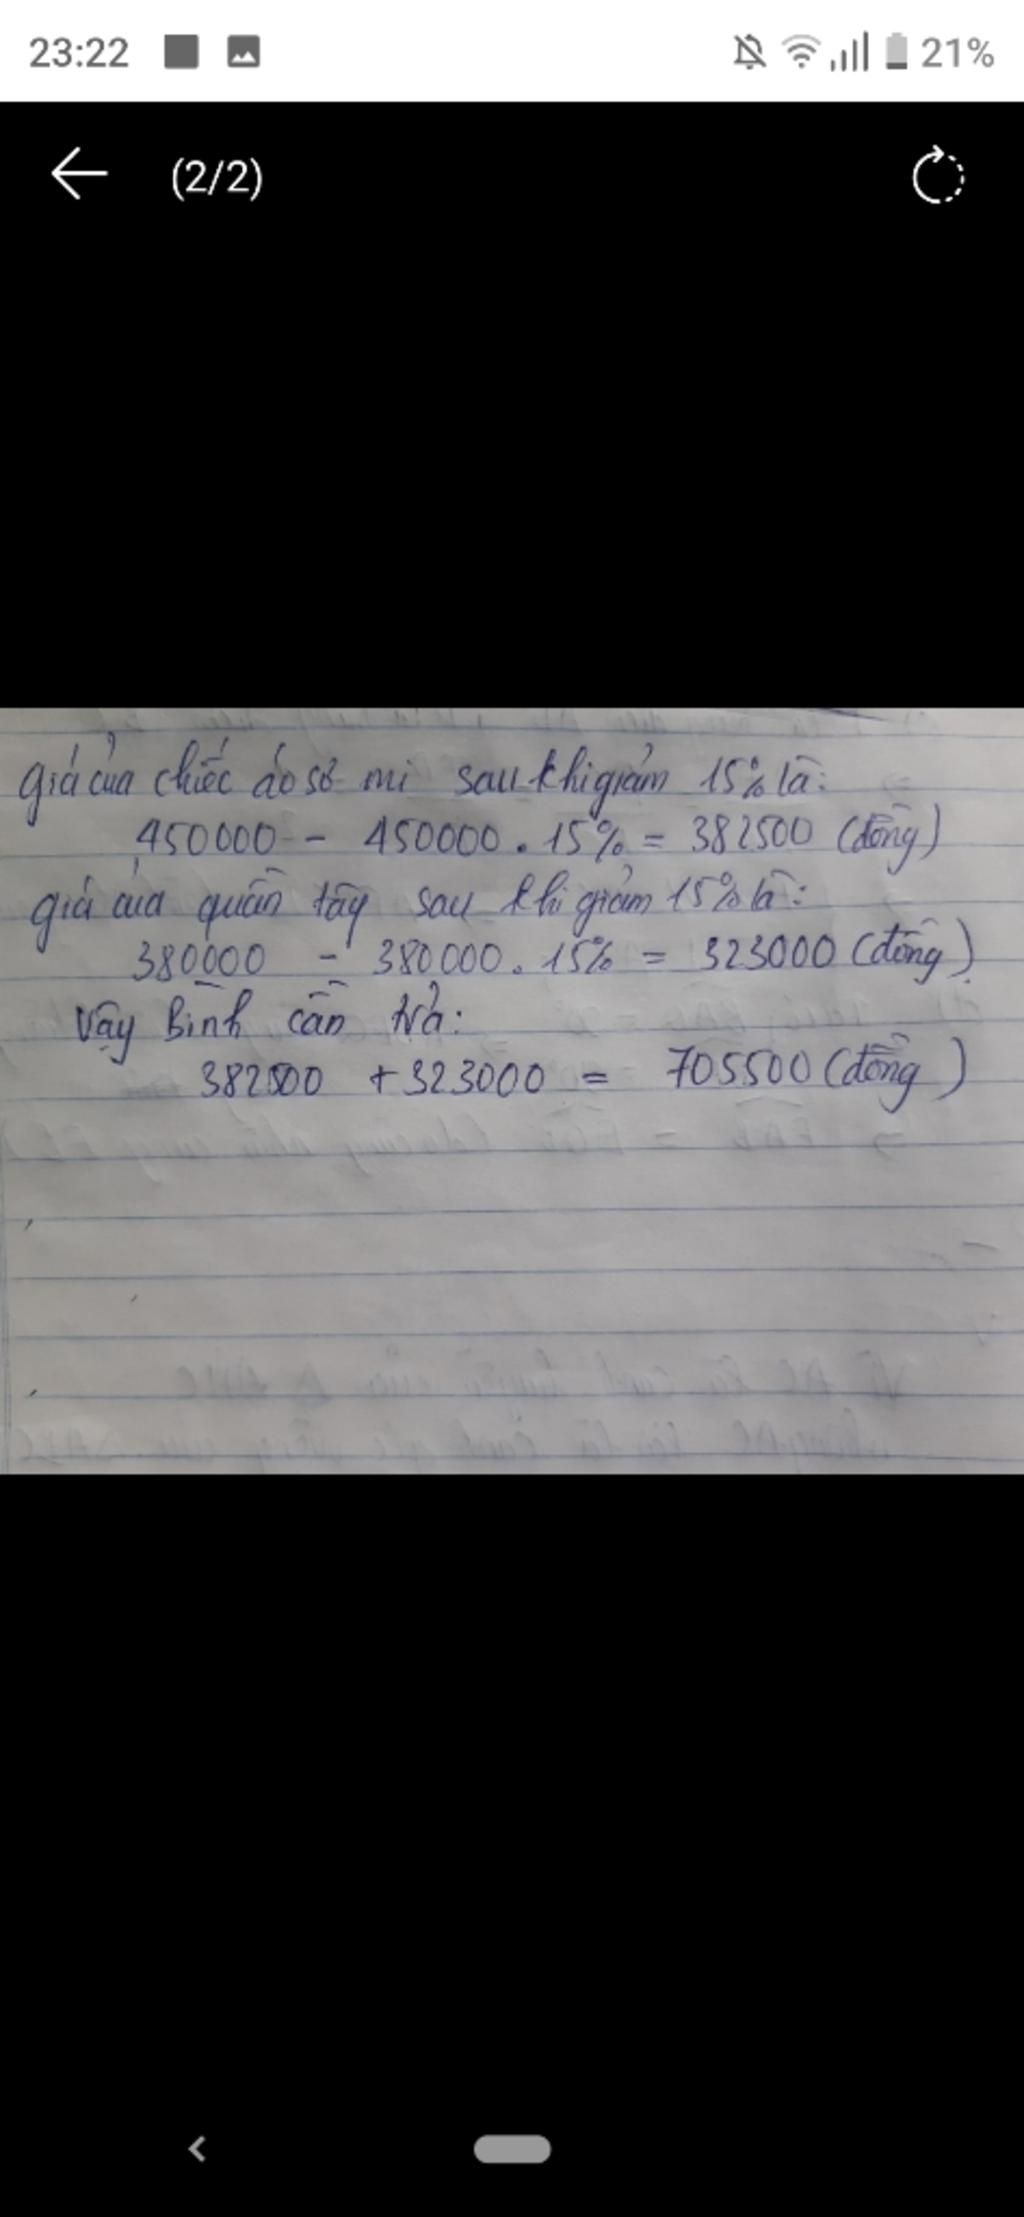 23:22 21%
(2/2)
giá của chiếc áo sơ mi sau khi giảm 15% là:
450000 - 450000 . 15% = 382500 (đồng)
giá của quần tây sau khi giảm 15% là:
380000 - 380000 . 15% = 323000 (đồng)
Vậy Bình cần trả:
382500 + 323000 = 705500 (đồng)